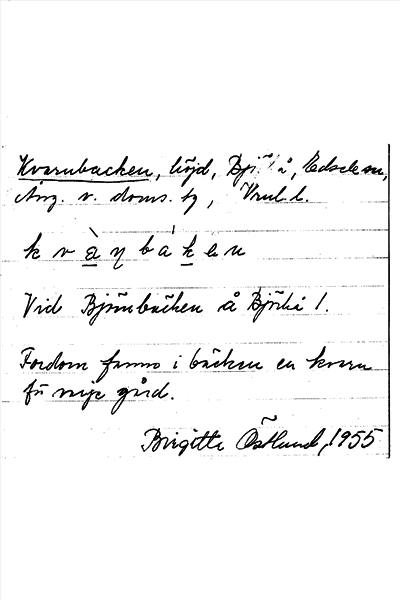 Kvarnbacken, höjd, Björkå, Edsele sn,
Ång. v. doms. tg,
k v a̲ ŋ b a k̲ e n
Vid Björnbäcken å Björkå 1.
Fordom fanns i bäcken en kvarn
för varje gård.
Birgitta Östlund, 1955